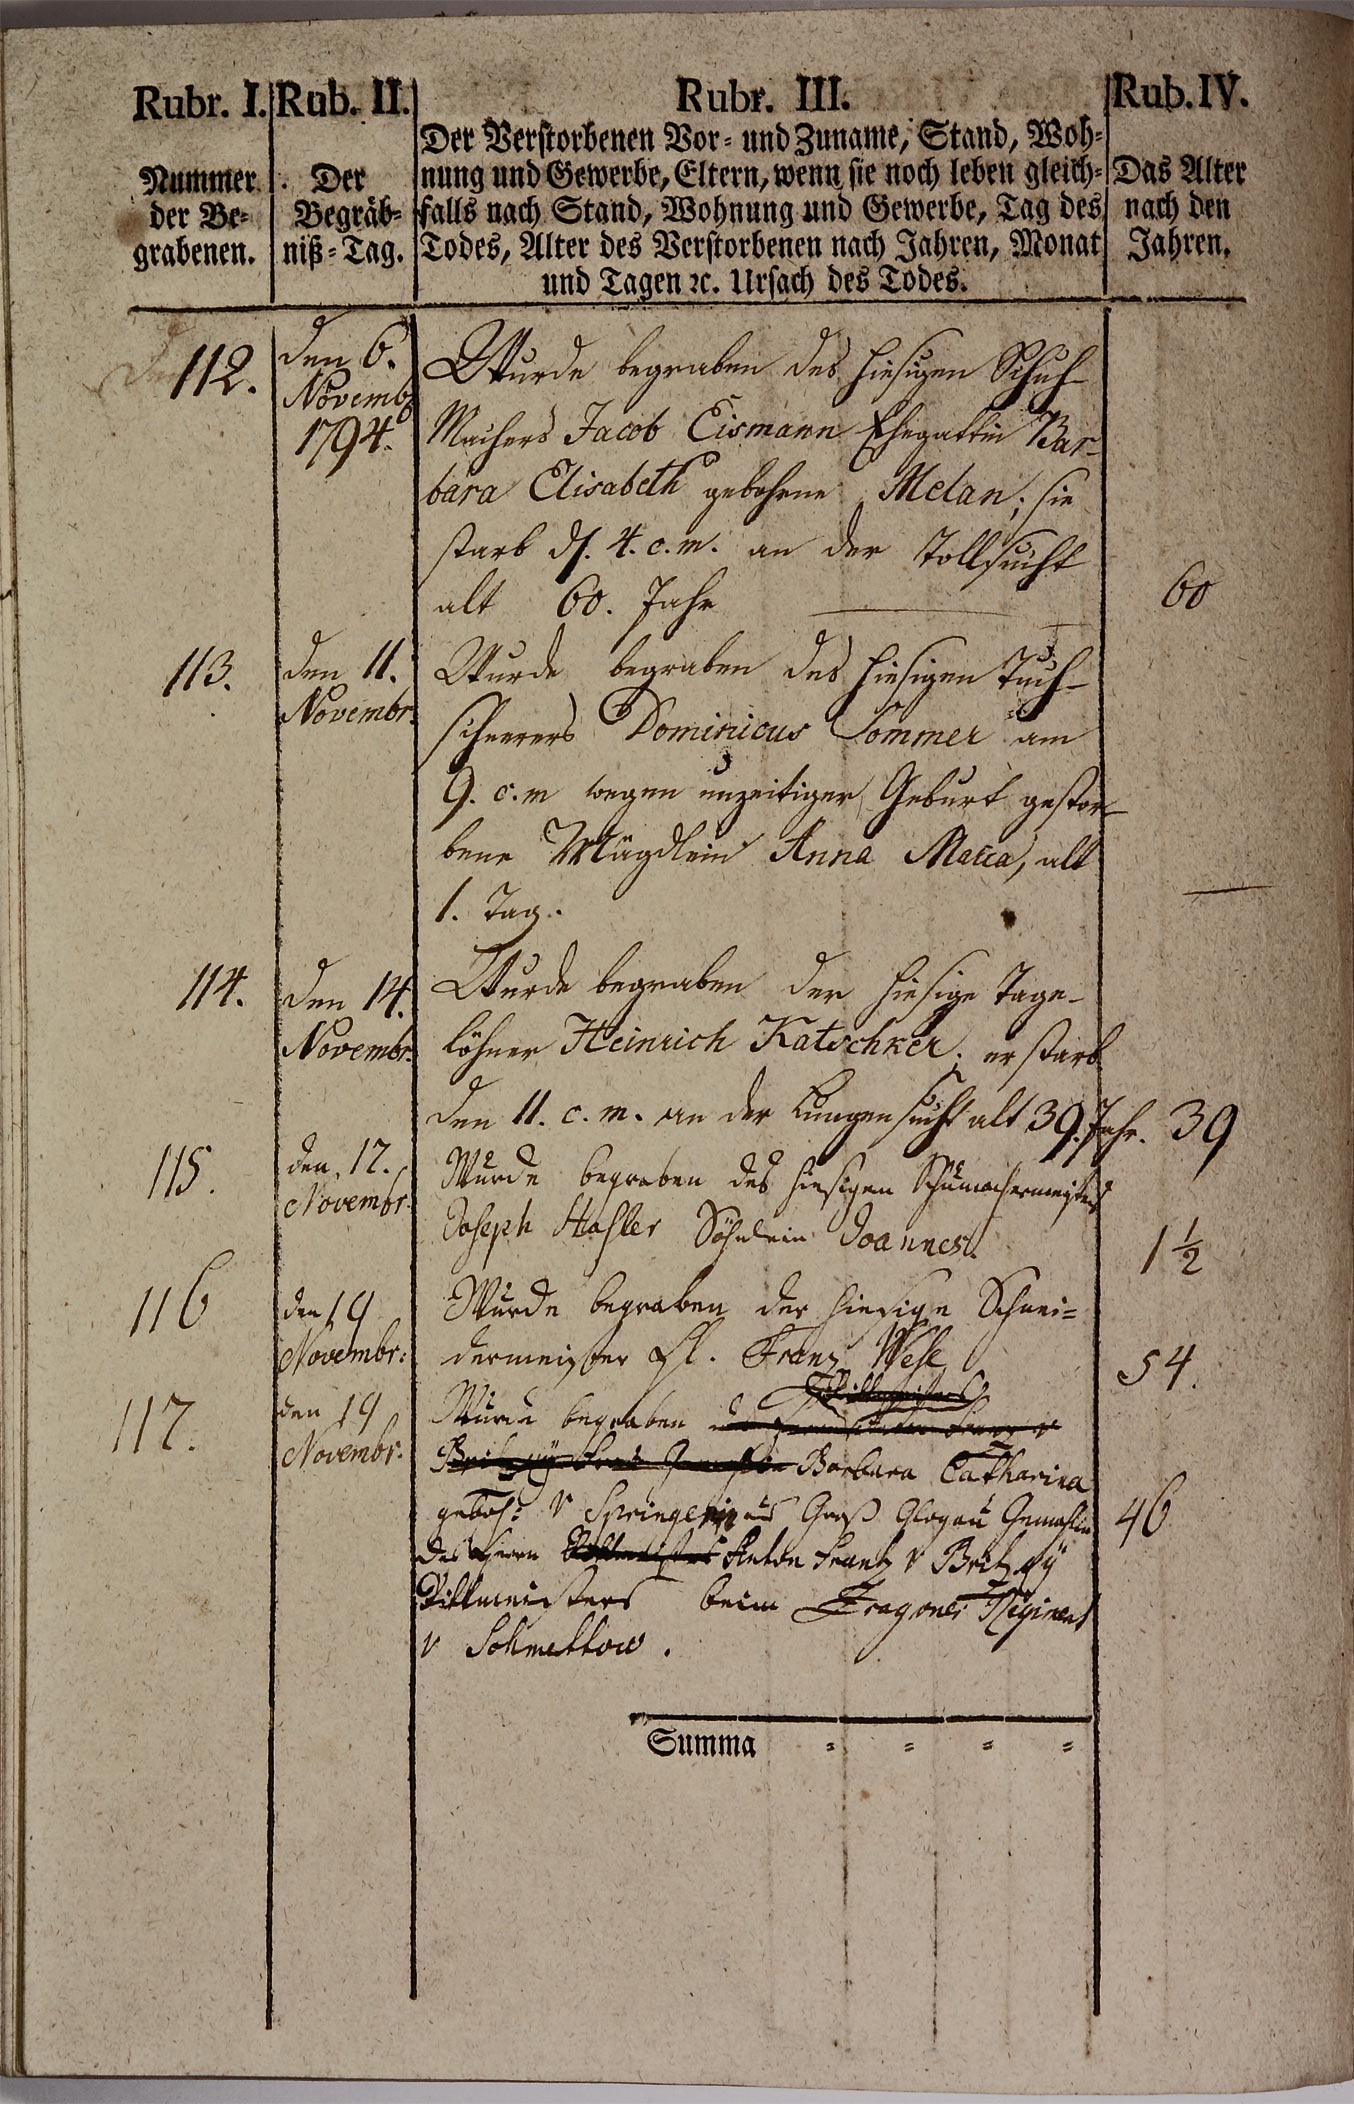 Rubr. I. Rub. II. Rubr. III. Rub. IV.
Nummer der Be=
grabenen.
Der
Begräb=
niß=Tag.
Der Verstorbenen Vor= und Zuname, Stand, Woh=
nung und Gewerbe, Eltern, wenn sie noch leben gleich=
falls nach Stand, Wohnung und Gewerbe, Tag des
Todes, Alter des Verstorbenen nach Jahren, Monat
und Tagen ꝛc. Ursach des Todes.
Das Alter
nach den
Jahren.
112.
den 6.
Novemb
1794.
Wurde begraben des hiesigen Schuh-
Machers Jacob Eismann Ehegattin Bar-
bara Elisabeth gebohrne Melan; sie
starb d. 4. c. m. an der Tollsucht
alt 60. Jahr
60
113.
den 11.
Novembr.
Wurde begraben des hiesigen Tuch-
scheerers Dominicus Sommer am
9. c. m wegen unzeitiger Geburt gestor-
bene Mägdlein Anna Maria, alt
1. Tag.
114.
den 14.
Novembr.
Wurde begraben der hiesige Tage-
löhner Heinrich Katschker; er starb
den 11. c. m. an der Lungensucht alt 39. Jahr. 39
115.
den 17.
Novembr.
Wurde begraben des hiesigen Schumachermeisters
Joseph Hasler Söhnlein Joannes.
1 ½
116
den 19
Novembr:
Wurde begraben der hiesige Schnei=
dermeister Franz Wese
54.
117.
den 19
Novembr.
Wurde begraben
Barbara Catharina
geboh: v Springerin aus Groß Glogau Gemahlin
des Herrn Rittmeisters Anton Frantz v Britzgÿ
Rittmeisters beim Dragoner Regiment
v Schmettow.
46
Summa = = = =